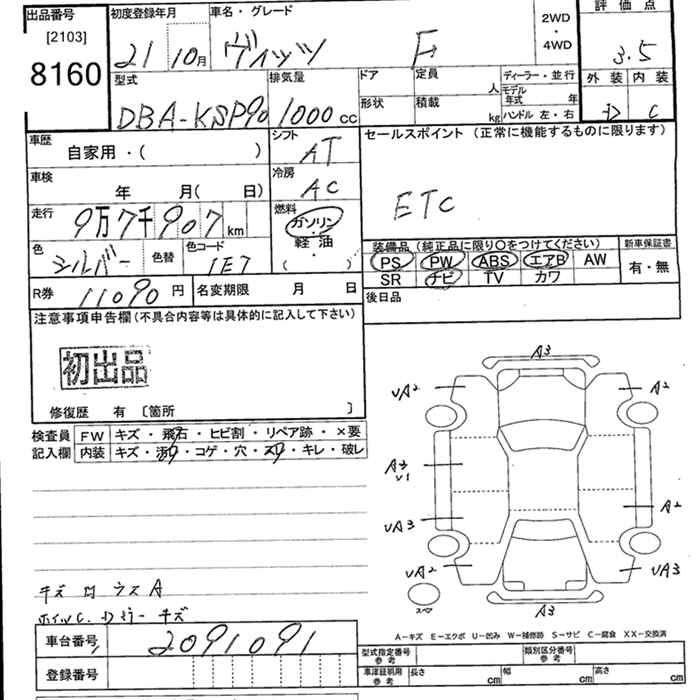 出品番号
[2103]
8160
初度登録年月
21 10月
車名・グレード
ヴィッツ F
2WD
・
4WD
評価点
3.5
型式
DBA-KSP90
排気量
1000 cc
ドア
定員
人
形状
積載
kg
ディーラー・並行
モデル年式 年
ハンドル 左・右
外装 内装
D C
車歴
自家用・( )
シフト
AT
車検
年 月( 日)
冷房
AC
走行
9万7千907km
燃料
ガソリン
軽油
( )
色
シルバー
色替
色コード
1E7
R券
11090円
名変期限 月 日
セールスポイント(正常に機能するものに限ります)
ETC
装備品(純正品に限り○をつけてください)
PS PW ABS エアB AW
SR ナビ TV カワ
新車保証書
有・無
後日品
注意事項申告欄(不具合内容等は具体的に記入して下さい)
初出品
修復歴 有 〔箇所 〕
検査員
記入欄
FW キズ・飛石・ヒビ割・リペア跡・×要
内装 キズ・汚れ・コゲ・穴・スレ・キレ・破レ
A3
UA2
A2
A3
U1
A2
UA3
UA2
UA3
A3
スペア
A-キズ E-エクボ U-凹み W-補修跡 S-サビ C-腐食 XX-交換済
車台番号
2091091
登録番号
型式指定番号
参考
類別区分番号
参考
車庫証明用
参考
長さ cm
幅 cm
高さ cm